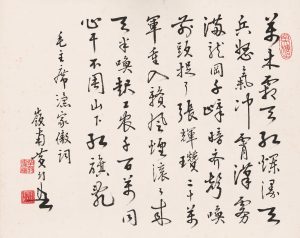 萬木霜天紅爛漫天
兵怒氣沖霄漢霧
滿龍岡千嶂暗齊聲喚
前頭捉了張輝瓚二十萬
軍重入贛風煙滾滾來
天半喚起工農千百萬同
心干不周山下紅旗亂
毛主席漁家傲詞
嶺南黃